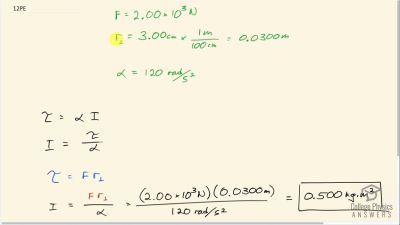 12PE
F = 2.00×10³ N
r⊥ = 3.00 cm × 1 m / 100 cm = 0.0300 m
α = 120 rad/s²
τ = α I
I = τ / α
τ = F r⊥
I = F r⊥ / α = (2.00×10³ N)(0.0300 m) / 120 rad/s² = 0.500 kg·m²
College Physics
ANSWERS